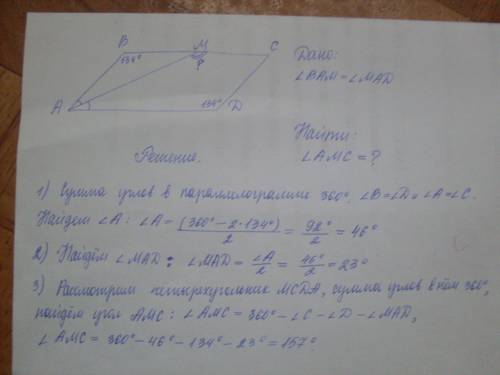 B M C
134° ?
A 134° D
Дано:
∠BAM = ∠MAD
Найти:
∠AMC = ?
Решение.
1) Сумма углов в параллелограмме 360°. ∠B = ∠D, ∠A = ∠C.
Найдем ∠A: ∠A = (360° - 2·134°)/2 = 92°/2 = 46°
2) Найдём ∠MAD: ∠MAD = ∠A/2 = 46°/2 = 23°
3) Рассмотрим четырехугольник MCDA, сумма углов в нём 360°,
найдём угол AMC: ∠AMC = 360° - ∠C - ∠D - ∠MAD,
∠AMC = 360° - 46° - 134° - 23° = 157°.